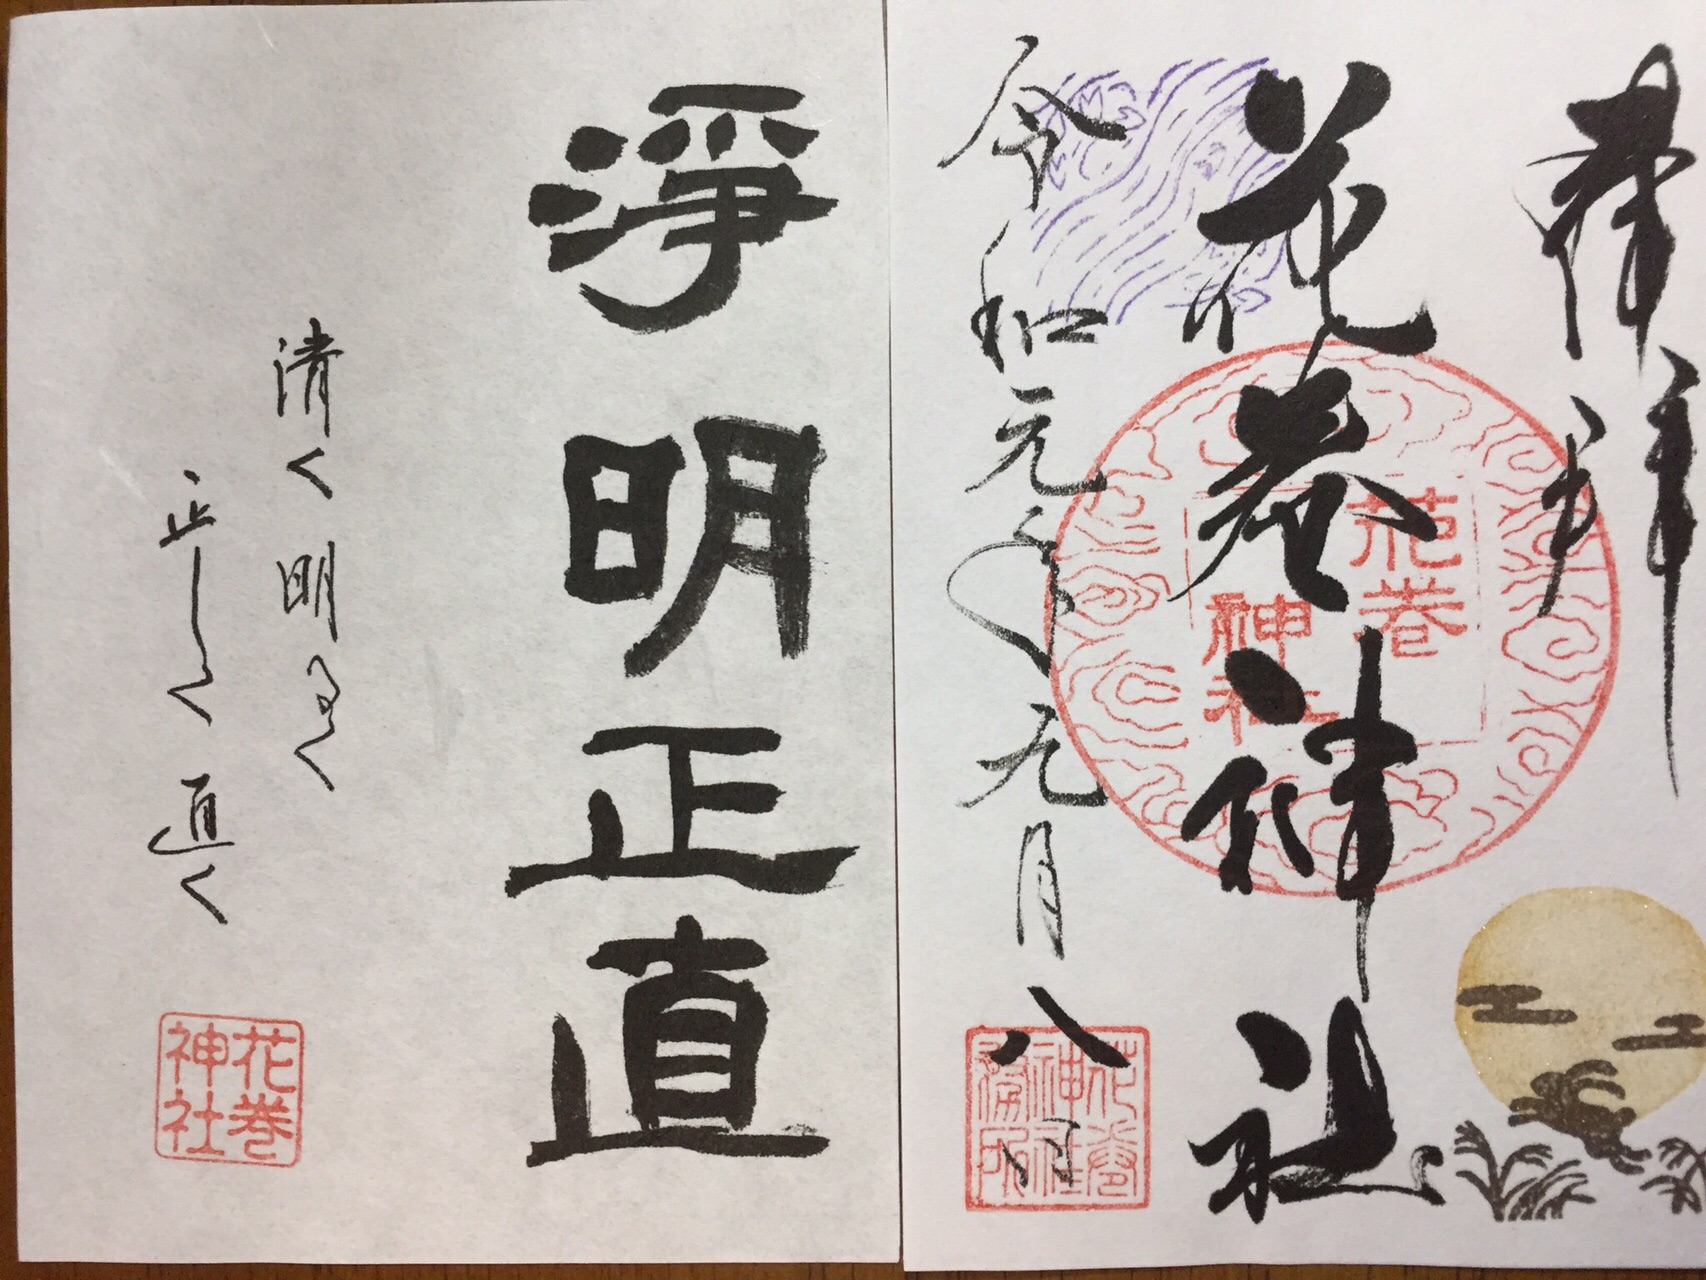 奉拝
花巻神社
花巻
神社
令和元年九月八日
花巻
神社
務所
淨明正直
清く明るく
正しく直く
花巻
神社